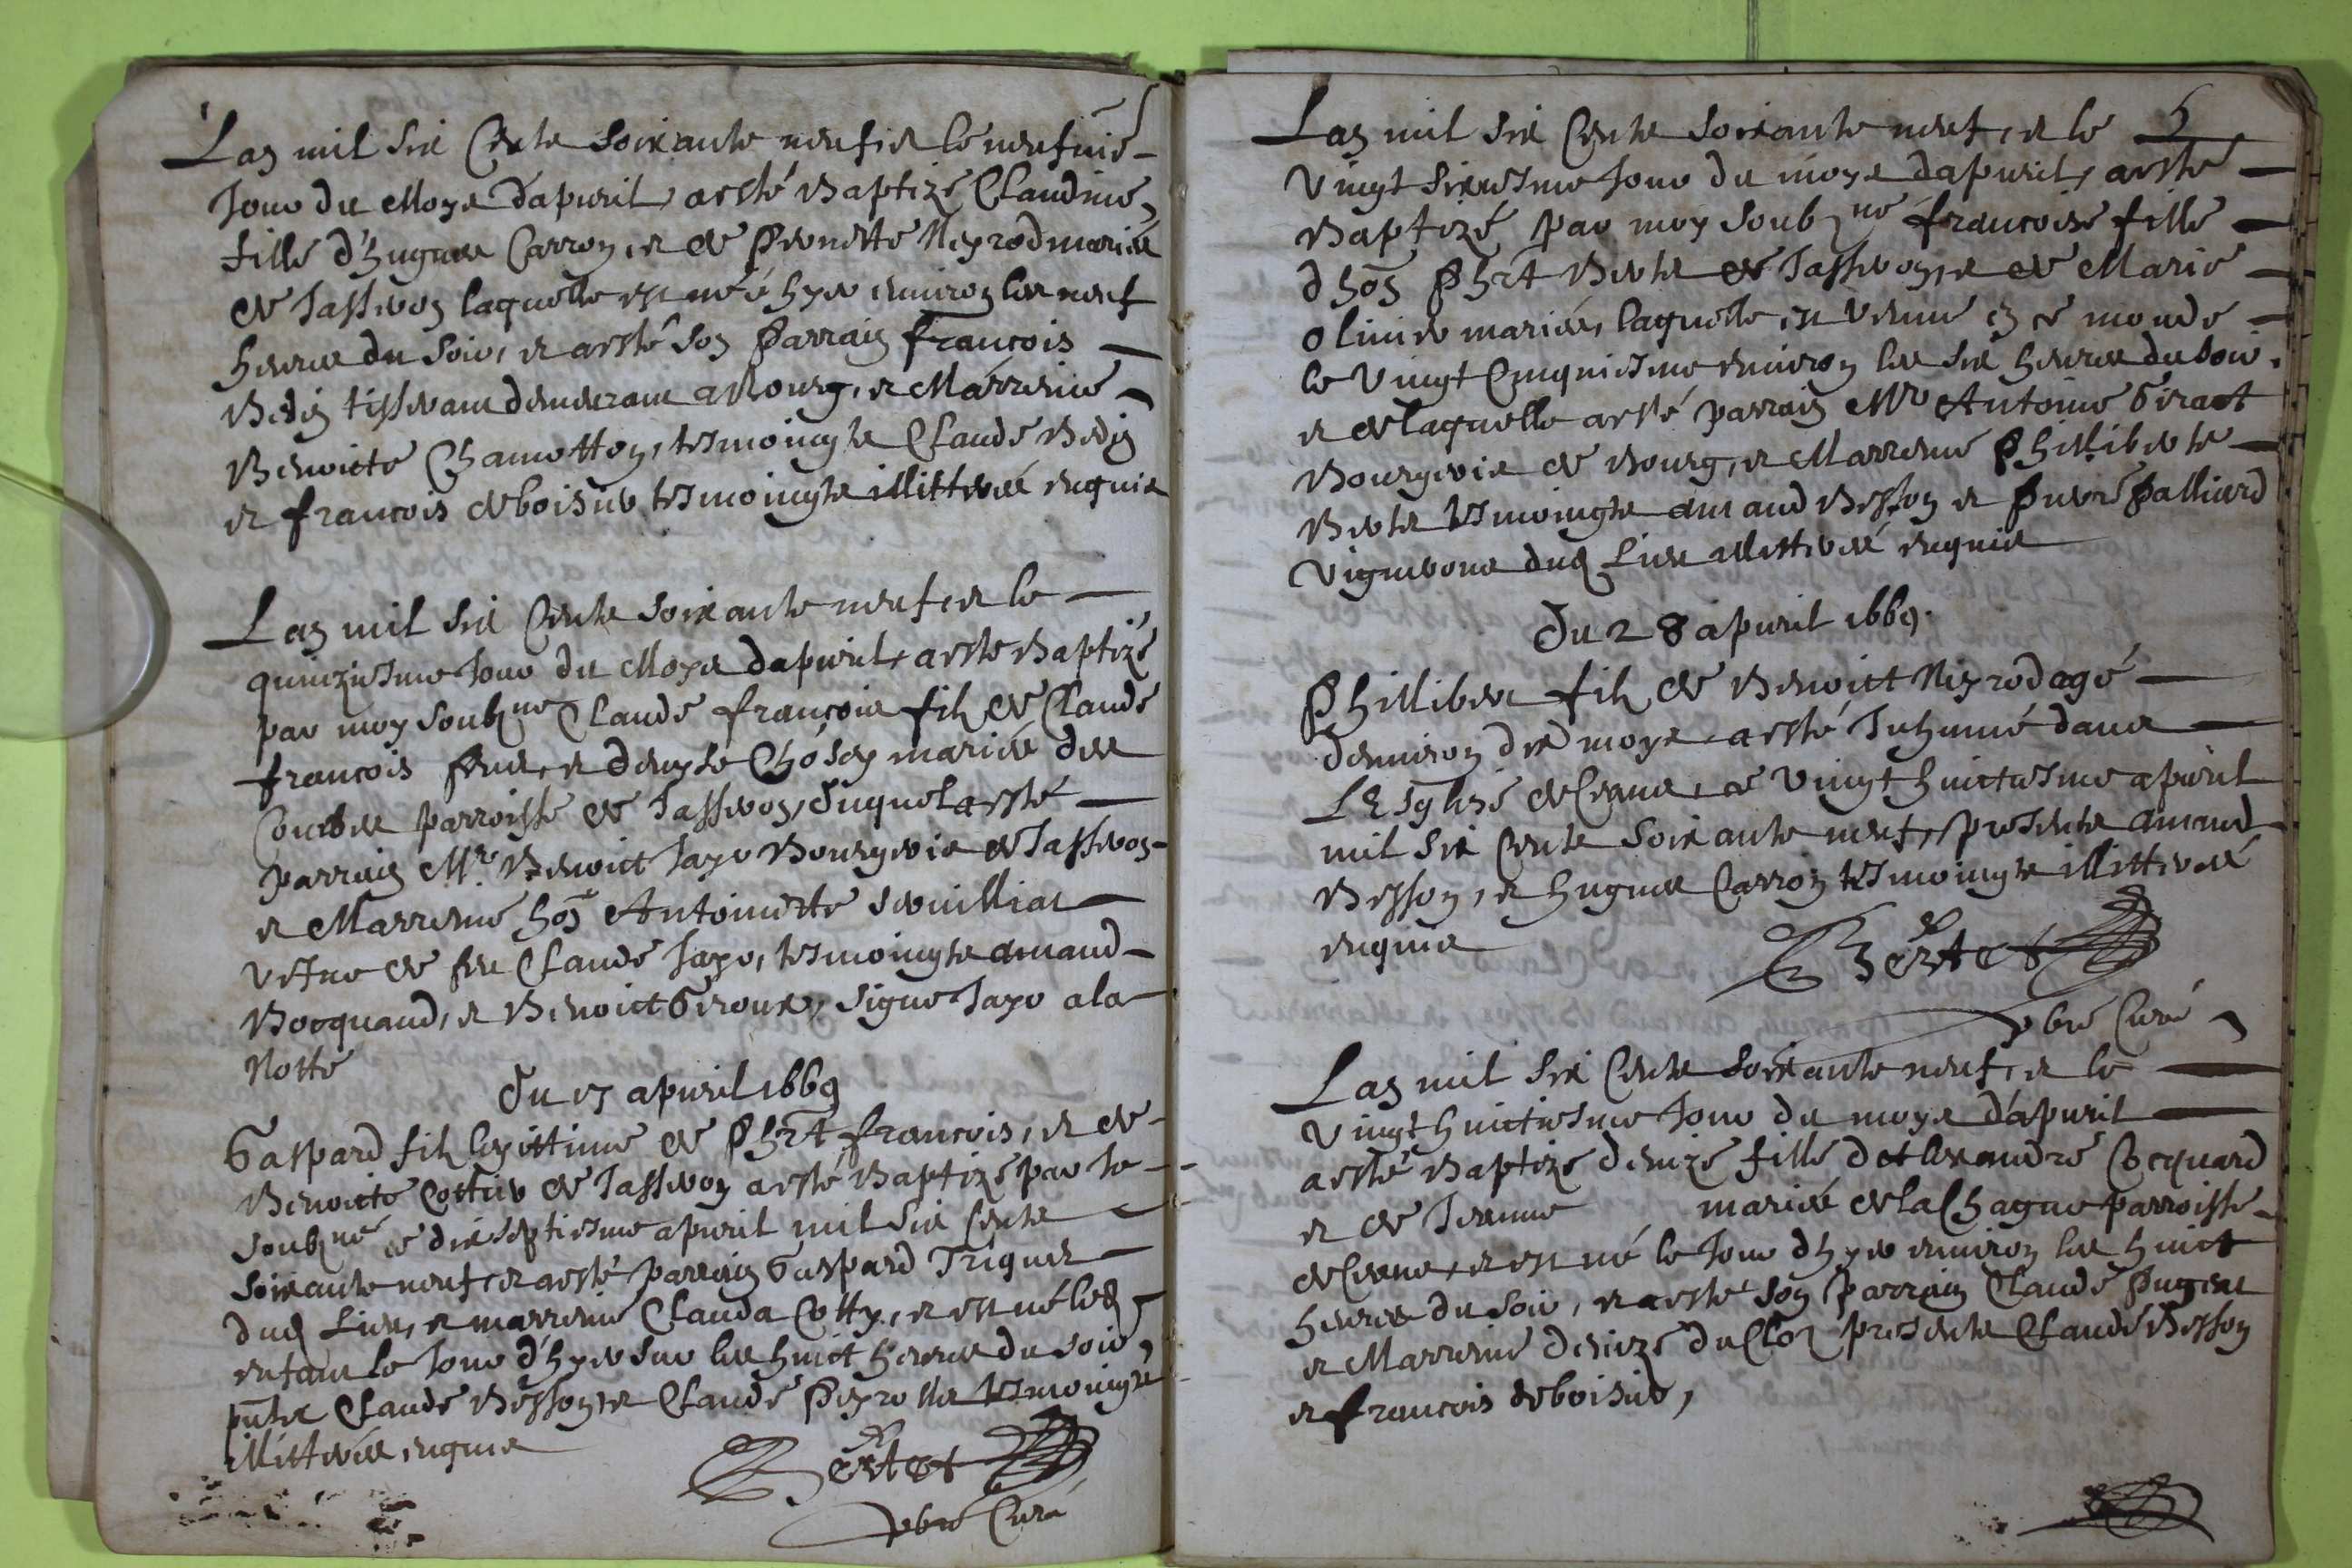 Lan mil six Cents soixante neuf, et le neufuie
Jour du Moys dapuril, aesté Baptizé Claudine,
fille d'hugues Carron, et de Pernette Neyrod mariés
de Jasseron laquelle est née hyer enuiron les neuf
heures du soir, et aesté son Parrain francois
Bedin tisserant demeurant a Bourg, et Marrenie
Benoicte Chamotton, tesmoingts Claude Bedin
et francois deboisuer tesmoingts illitterés enquis
Lan mil six Cents soixante neuf et le
quinziesme Jour du Moys dapuril, aeste Baptizé
par moy soubzne Claude francois filz de Claude
francois et denyse mariés des
Combes parroisse de Jasseron, duquel aesté
parrain Mre Benoict Jayr Bourgeois de Jasseron
et Marrenie hon Antoinette
vefue de feu Claude Jayr, tesmoingts amand
Bocquand, et Benoict Giroux, signe Jayr a la
Notte
Du 17 apuril 1669
Gaspard filz legittime de Phrt francois, et de
Benoicte Cottier de Jasseron aesté Baptizé par Je
soubzné ce dixseptiesme apuril mil six Cents
soixante neuf, et aesté parrain Gaspard Triquet
dud Lieu, et marrenie Clauda Cotty, et est né led
enfant le Jour d'hyer sur les huict heures du soir,
pnts Claude Besson, et Claude Peyrolle tesmoingts
illitterés enquis
Bertet
pbre Curé
5
Lan mil six Cents soixante neuf, et le
Vingt sixiesme Jour du moys dapuril, aeste
Baptizé par moy soubzné francoise fille
d hon Phrt Berte de Jasseron, et de Marie
oliuier mariés, laquelle est venue en ce monde
le Vingt Cinquiesme enuiron les six heures du soir,
et de laquelle aesté parrain Mre Antoine Giraot
Bourgeois de Bourg, et Marrenie Philliberte
Berte tesmoingts amand Besson et Pierre Palliard
Vignerons dud Lieu illitterés enquis
Du 28 apuril 1669.
Phillibert filz de Benoict Neyrod agé
denuiron dix moys, aesté Inhumé dans
LEsglise de Ceans, ce Vingt huictiesme apuril
mil six Cents soixante neuf, presents amand
Besson, et hugues Carron tesmoingts illitterés
enquis
Bertet
pbre Curé
Lan mil six Cents soixante neuf, et le
Vingt huictiesme Jour du moys d'apuril
aesté Baptize denize fille d'Alexandre Cocquard
et de Jeanne mariés de la Chagne parroisse
de Ceans, et est né le Jour d hyer enuiron les huict
heures du soir, et aesté son Parrain Claude Puget
et Marrenie denize du Clos presents Claude Besson
et francois deboisuer,